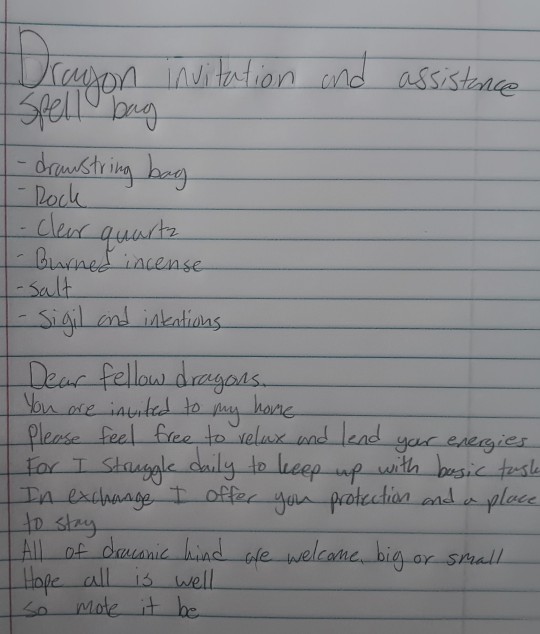 Dragon invitation and assistance
Spell bag
- drawstring bag
- Rock
- Clear quartz
- Burned incense
- Salt
- Sigil and intentions
Dear fellow dragons.
You are invited to my home
Please feel free to relax and lend your energies
For I struggle daily to keep up with basic task
In exchange I offer you protection and a place
to stay
All of draconic kind are welcome, big or small
Hope all is well
So mote it be